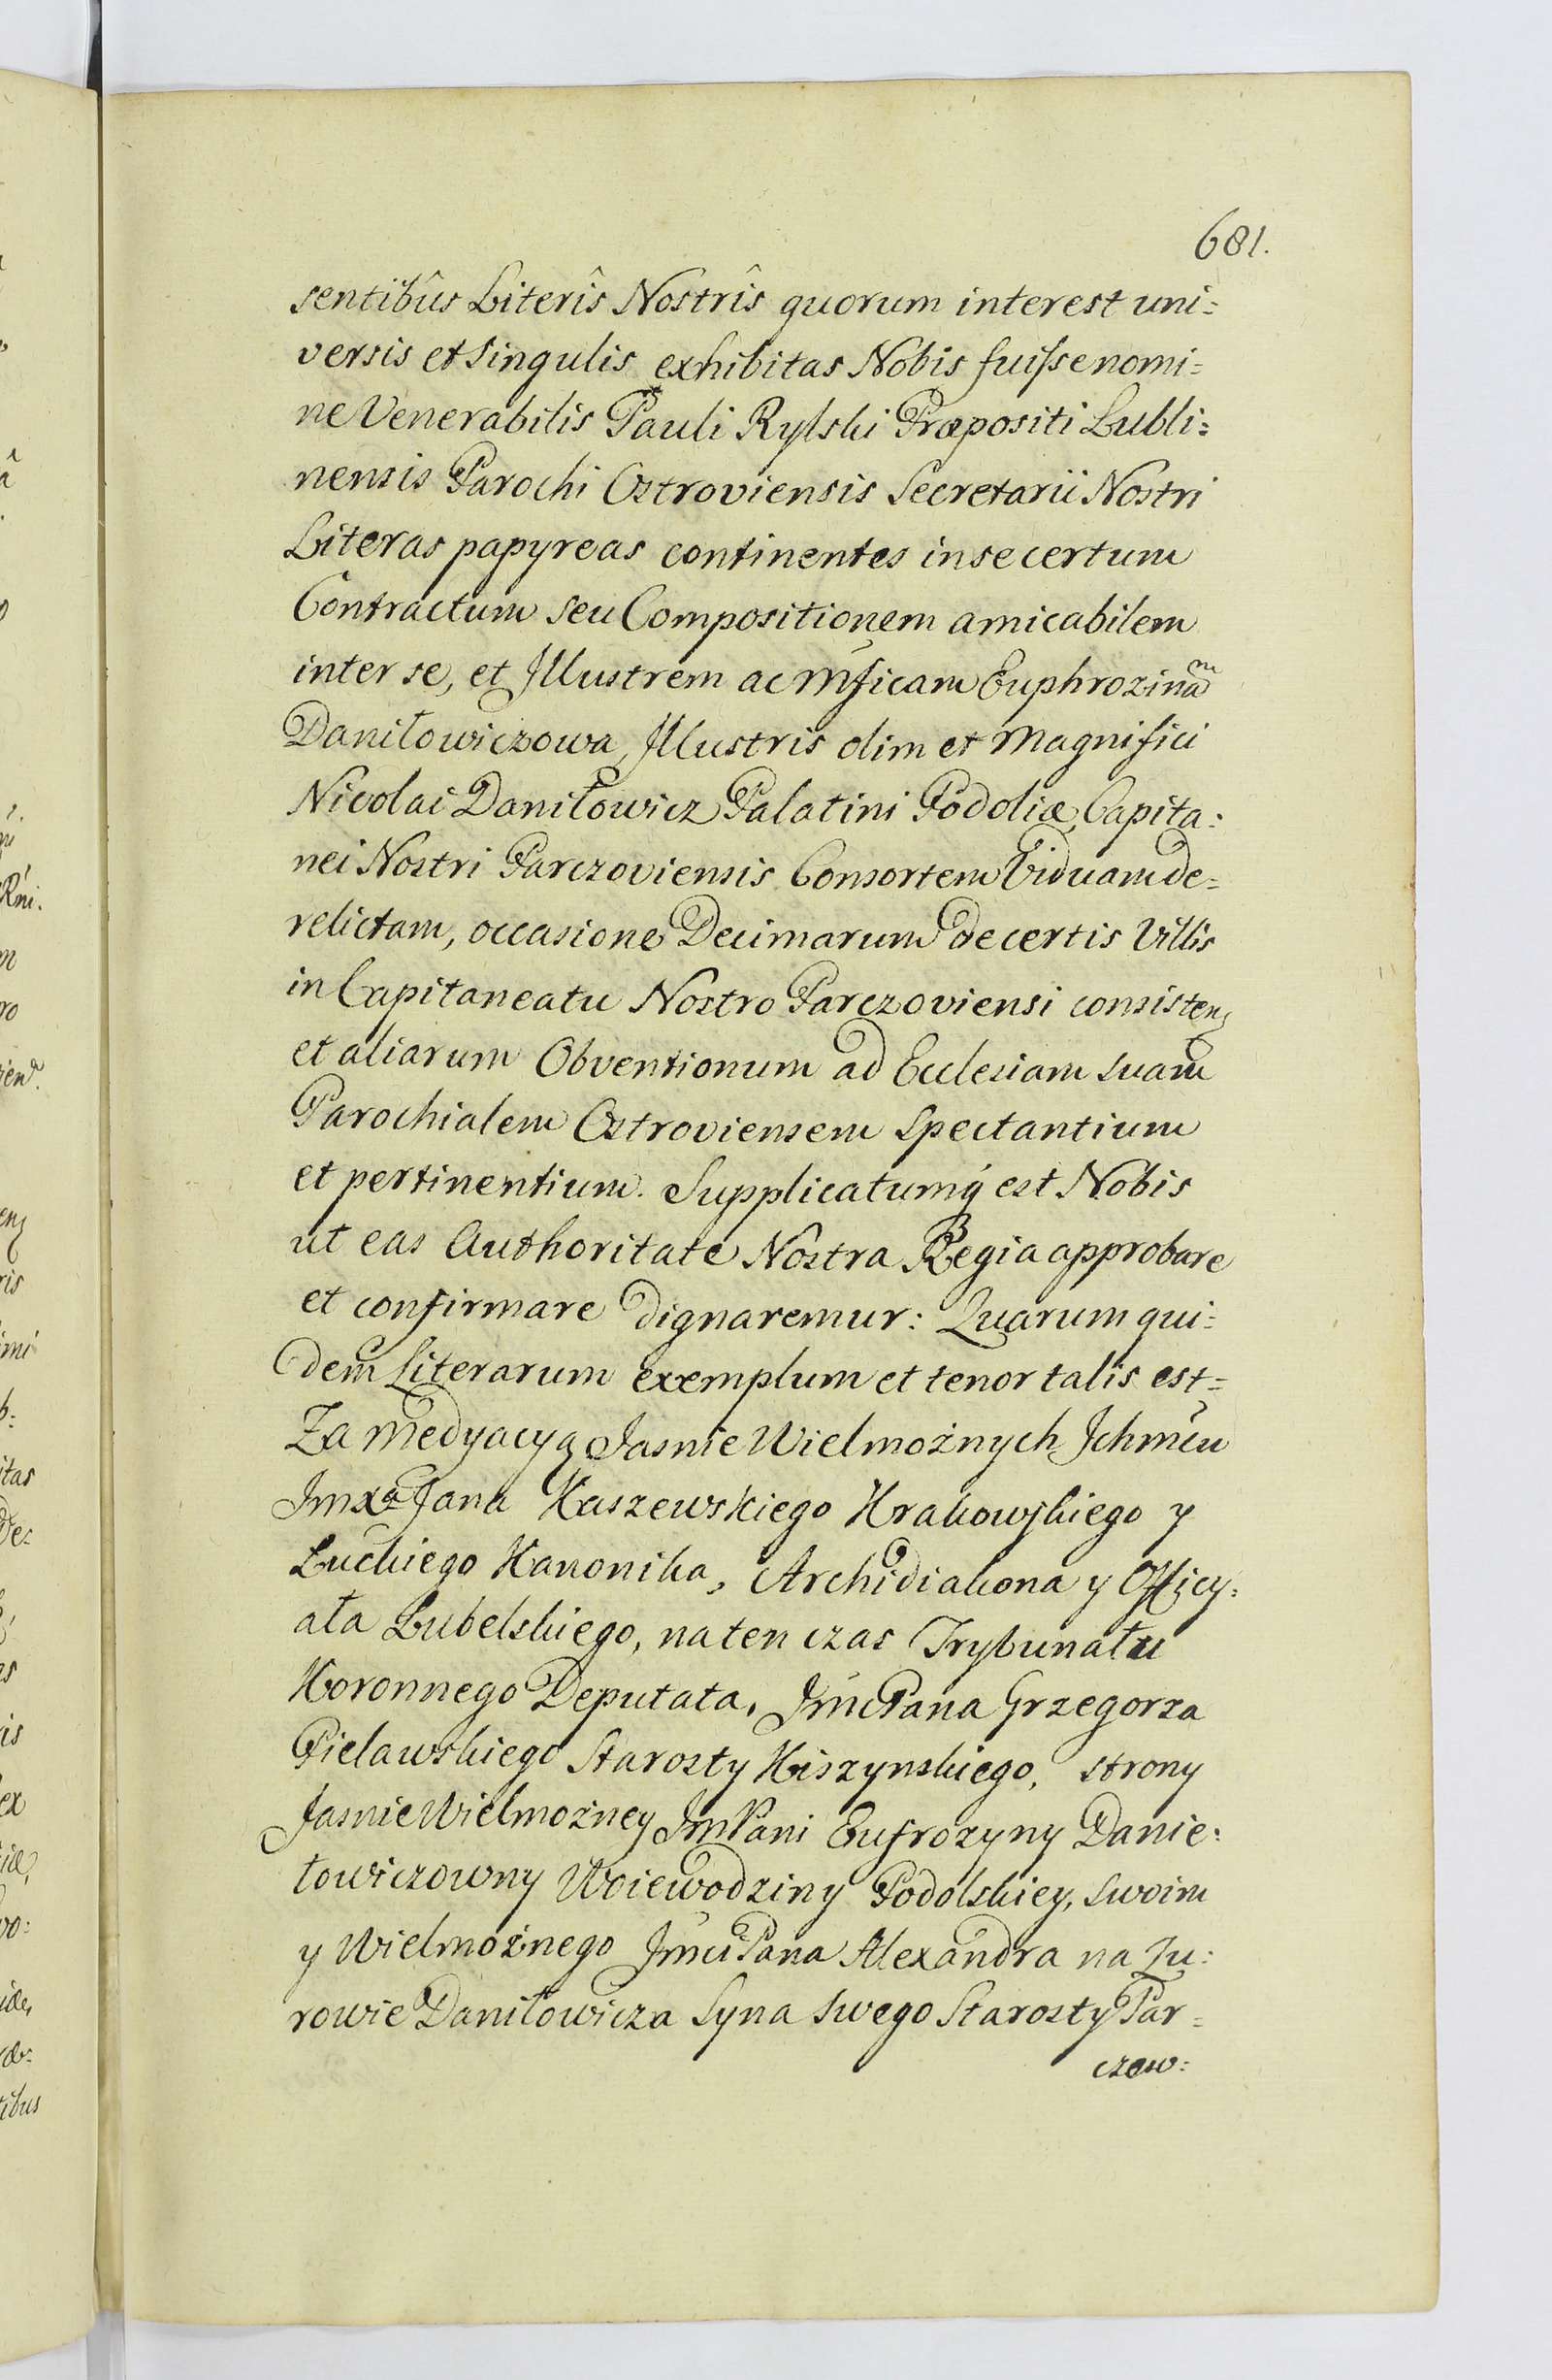 681.
sentibûs Literîs Nostrîs quorum interest uni=
versis et singulis exhibitas Nobis fuisse nomi=
ne Venerabilis Pauli Rylski Præpositi Lubli=
nensis Parochi Ostroviensis Secretarii Nostri
Literas papyreas continentes in se certum
Contractum seu Compositionem amicabilem
inter se, et Illustrem ac Mficam Euphrozinam
Daniłowiczowa, Illustris olim et Magnifici
Nicolai Daniłowicz Palatini Podoliæ, Capita:
nei Nostri Parczoviensis Consortem Viduam de=
relictam, occasione Decimarum de certis Villis
in Capitaneatu Nostro Parczoviensi consisten
et aliarum Obventionum ad Ecclesiam suam
Parochialem Ostroviensem Spectantium
et pertinentium. Supplicatumq́ est Nobis
ut eas Authoritate Nostra Regia approbare
et confirmare dignaremur: Quarum qui=
dem Literarum exemplum et tenor talis est=
Za Medyacyą Jasnie Wielmożnych Ichmćiu
Imxa Jana Kaszewskiego Krakowskiego y
Łuckiego Kanonika, Archidiakona y Officy:
ała Lubelskiego, na ten czas Trybunału
Koronnego Deputata, Jmć Pana Grzegorza
Pielawskiego Starosty Kiszynskiego, strony
Jasnie Wielmożney Jm Pani Eufrozyny Danie:
łowiczowny Woiewodziny Podolskiey, swoim
y Wielmożnego Jmći Pana Alexandra na Zu:
rowie Daniłowicza Syna swego Starosty Par=
czow: